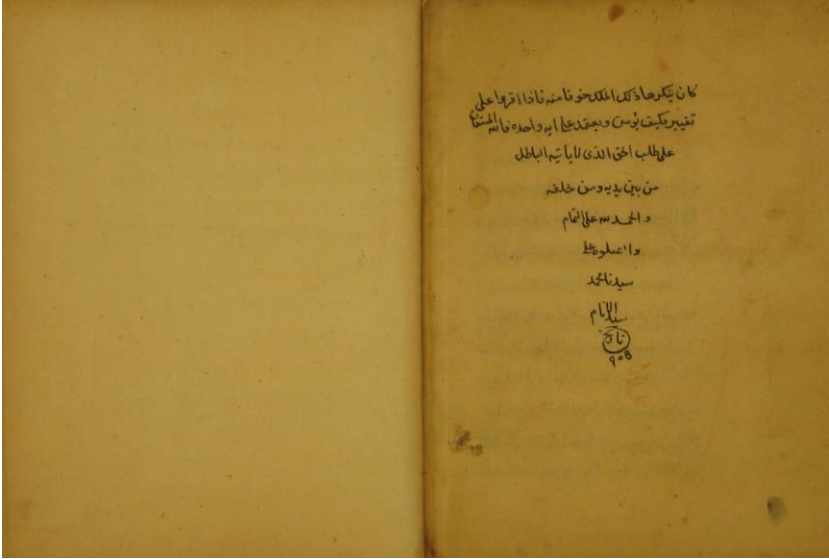 كان ينكرها ذلك الملك خوفا منه فاذا اقروا على
تغيير فكيف يؤمن ويعتمد على ايه واحده فالله المستعان
على طلب الحق الذى لا ياتيه الباطل
من بين يديه ومن خلفه
والحمد لله على التمام
والصلوه على
سيدنا محمد
سيد الانام
تاريخ
٩٥٥